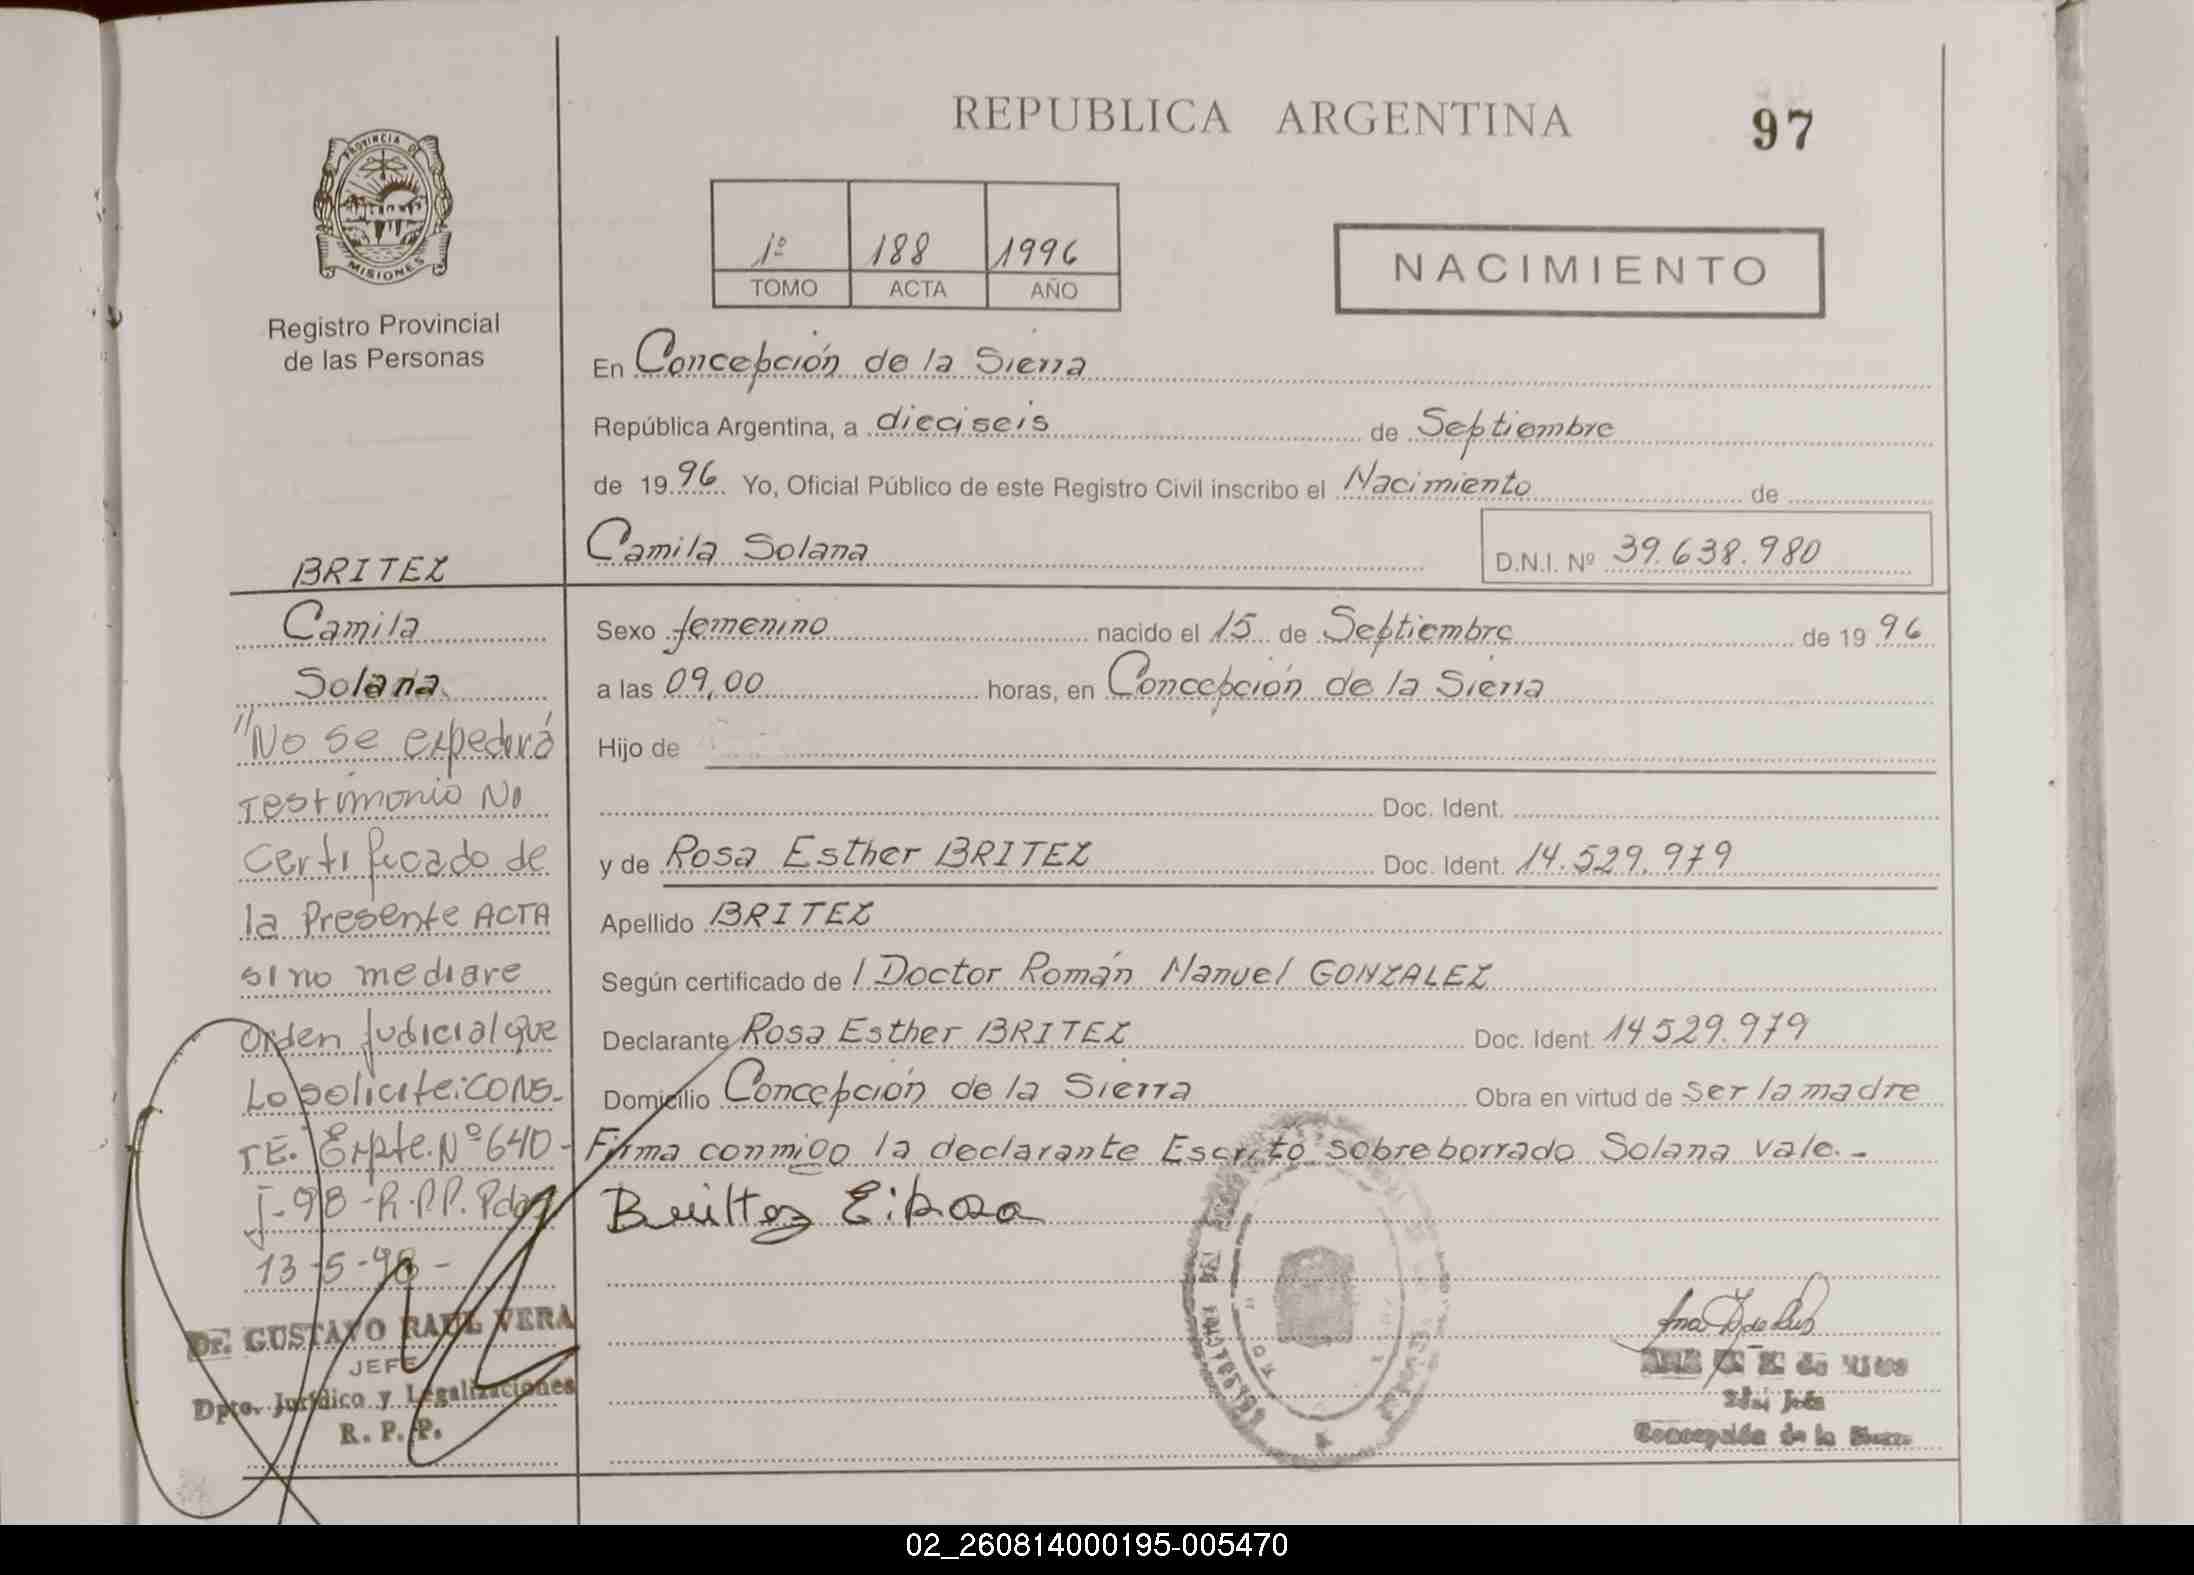 REPUBLICA ARGENTINA
97
PROVINCIA DE
MISIONES
Registro Provincial
de las Personas
1º 188 1996
TOMO ACTA AÑO
NACIMIENTO
En Concepción de la Sierra
República Argentina, a dieciseis de Septiembre
de 1996 Yo, Oficial Público de este Registro Civil inscribo el Nacimiento de
Camila Solana
D.N.I. Nº 39.638.980
BRITEZ
Camila
Solana
"No se expedirá
Testimonio Ni
Certificado de
la Presente ACTA
si no mediare
Orden Judicial que
Lo solicite: CONS-
TE. Expte. Nº 640-
J-98-R.P.P. Pdas
13-5-98-
Dr. GUSTAVO RAUL VERA
JEFE
Dpto. Jurídico y Legalizaciones
R. P. P.
Sexo femenino nacido el 15 de Septiembre de 1996
a las 09,00 horas, en Concepción de la Sierra
Hijo de
Doc. Ident.
y de Rosa Esther BRITEZ Doc. Ident. 14.529.979
Apellido BRITEZ
Según certificado de l Doctor Román Manuel GONZALEZ
Declarante Rosa Esther BRITEZ Doc. Ident. 14529.979
Domicilio Concepción de la Sierra Obra en virtud de ser la madre
Firma conmigo la declarante Escrito sobreborrado Solana vale.-
Concepción de la Sierra
02_260814000195-005470